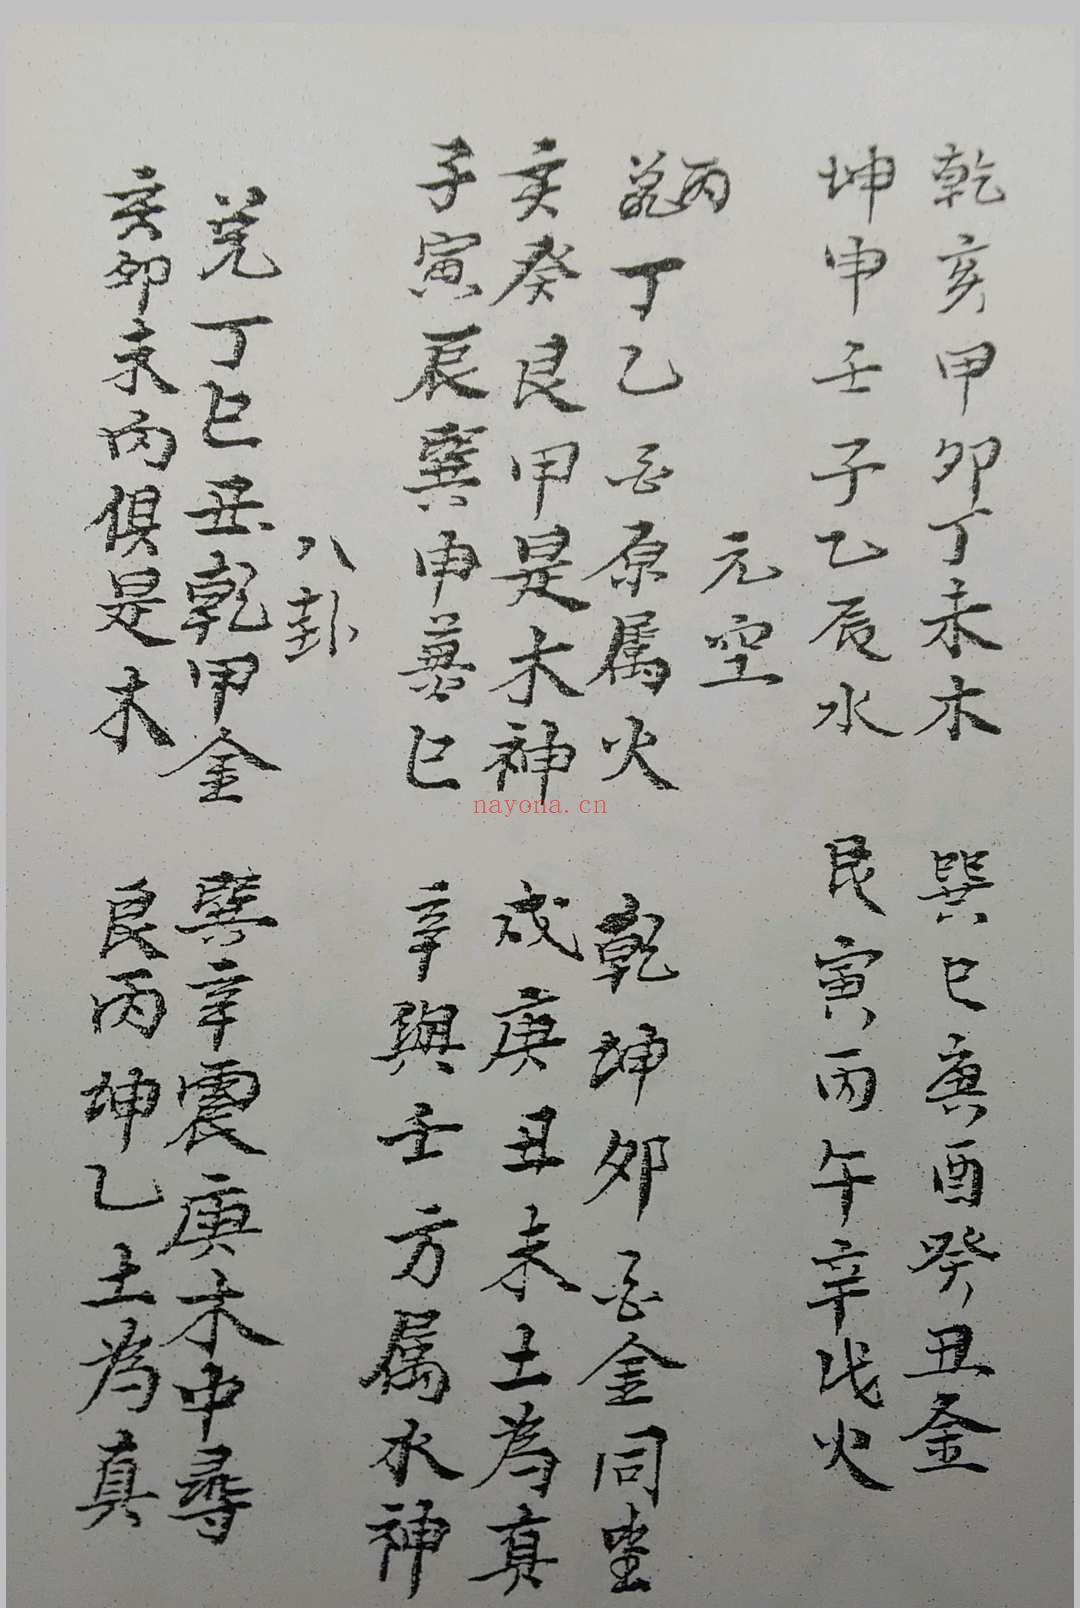 乾亥甲卯丁未木　巽巳庚酉癸丑金
坤申壬子乙辰水　艮寅丙午辛戌火
元空
丙丁乙酉原属火　乾坤卯
金同
亥癸艮甲是木神　戌庚丑未土為真
子寅辰巽申巳　辛與壬方属水神
八卦
兑丁巳丑乾甲金　巽辛震庚木中尋
亥卯未丙俱是木　艮丙坤乙土為真
nayona.cn